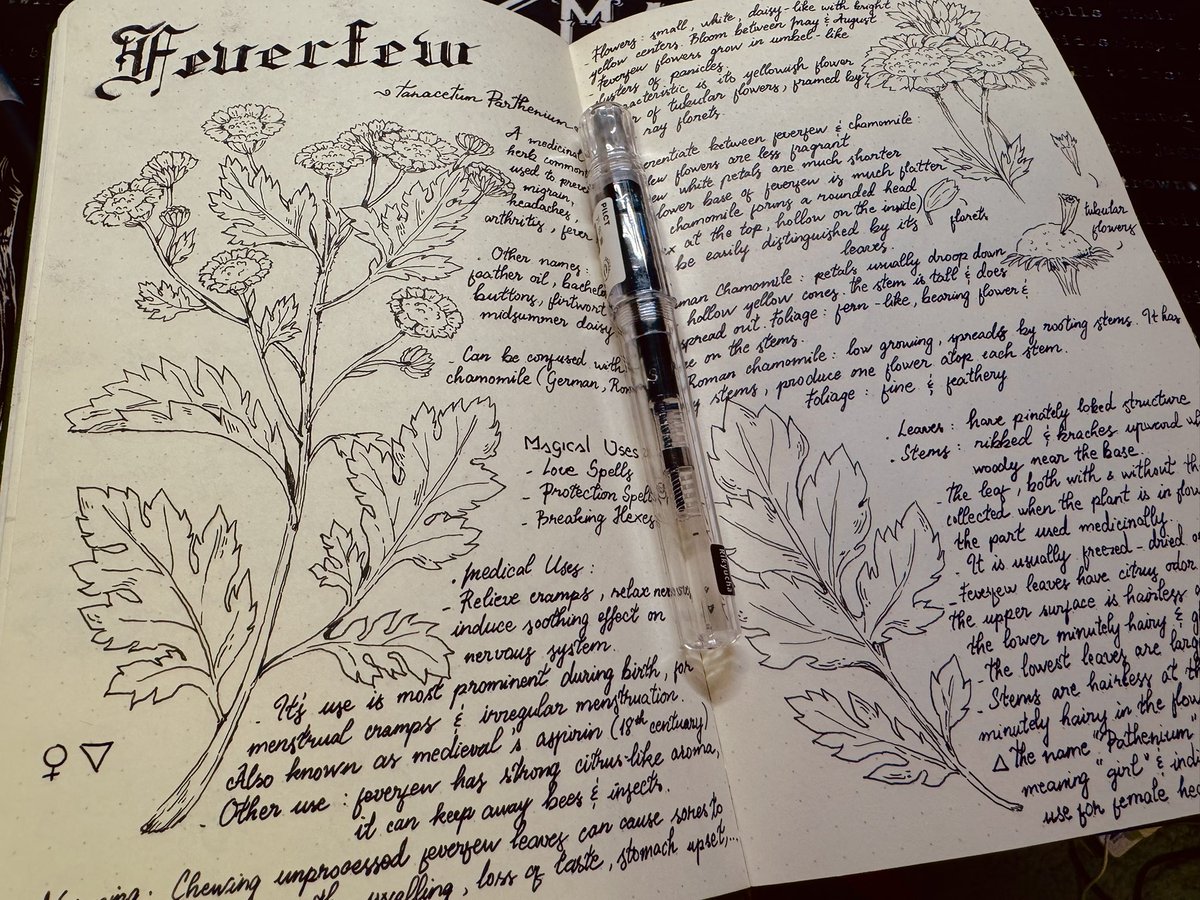 Feverfew
Tanacetum Parthenium
A medicinal
herb common
used to preve
migran,
headaches,
arthritis, fever
Other names:
feather oil, bachelo
buttons, flirtwort
midsummer daisy
- Can be confused with
chamomile (German, Rom
Magical Uses
- Love Spells
- Protection Spells
- Breaking Hexes
. Medical Uses :
- Relieve cramps, relax
induce soothing effect on
nervous system.
- It's use is most prominent during birth, for
menstrual cramps & irregular menstruation.
Also known as medieval's aspirin (18th centuary)
. Other use : feverfew has strong citrus-like aroma,
it can keep away bees & insects.
Chewing unprocessed feverfew leaves can cause sores to
swelling, loss of taste, stomach upset,...
♀ ▽
Flowers : small, white, daisy-like with bright
yellow centers. Bloom between May & August
Feverfew flowers grow in umbel-like
clusters of panicles.
characteristic is its yellowish flower
of tubular flowers, framed by
ray florets.
erentiate between feverfew & chamomile :
flowers are less fragrant
white petals are much shorter
lower base of feverfew is much flatter
chamomile forms a rounded head
at the top, hollow on the inside)
be easily distinguished by its
leaves.
florets
tubular
flowers
man Chamomile : petals usually droop down
hollow yellow cones. the stem is tall & does
spread out. Foliage : fern-like, bearing flower &
on the stems.
Roman chamomile : low growing, spreads by rooting stems. It has
stems, produce one flower atop each stem.
Foliage : fine & feathery
. Leaves : have pinately lobed structure
. Stems : ribbed & braches upward wi
woody near the base.
- The leaf, both with & without th
collected when the plant is in flow
the part used medicinally.
- It is usually freezed-dried o
- Feverfew leaves have citrus odor
the upper surface is hairless
the lower minutely hairy & g
- the lowest leaves are larg
- Stems are hairless at th
minutely hairy in the flow
△ The name "Pathenium"
meaning "girl" & indi
use for female hea
Rikyucha